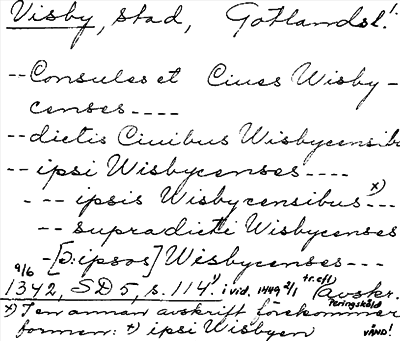 Visby, stad, Gotlandsl.
--Consules et Ciues Wisby-
censes----
--dictis Ciuibus Wisbycensibu
--ipsi Wisbycenses----
---ipsis Wisbycensibus--x)
--supradicti Wisbycenses
-[ɔ:ipsos] Wisbycenses---
9/6
1342, SD 5, s. 114. i vid. 1449 2/1 tr. efl. avskr.
Peringskiöld
x) I en annan avskrift förekommer
formen: +) ipsi Wisbyen VÄND!